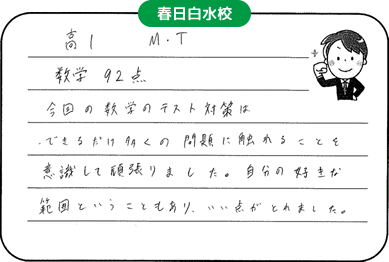 春日白水校
高1 M・T
数学 92点
今回の数学のテスト対策は
できるだけ多くの問題に触れることを
意識して頑張りました。自分の好きな
範囲ということもあり、いい点がとれました。